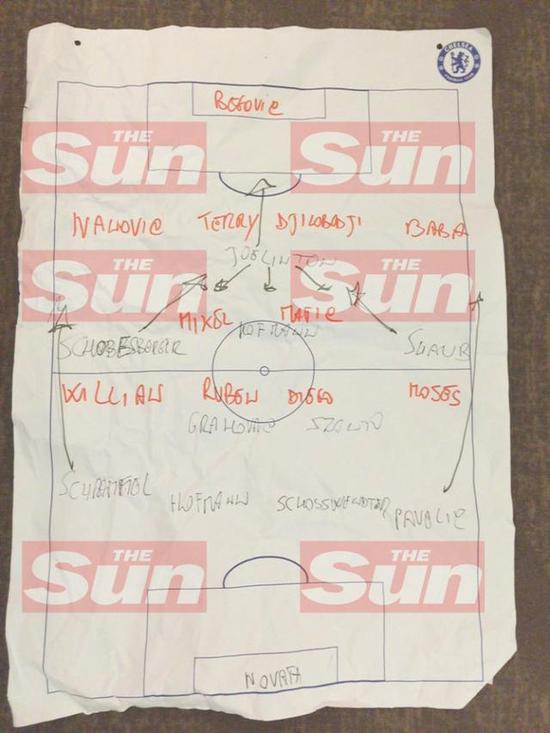 CHELSEA
BEGOVIC
THE Sun THE Sun
IVANOVIC TERRY DJILOBODJI BABA
JOELINTON
THE Sun THE Sun
MIKEL MATIC
HOFMANN
SCHOBESBERGER SCHAUB
WILLIAN RUBEN DIEGO MOSES
GRAHOVAC SZANTO
SCHRAMMEL HOFMANN SCHOSSWENDTER PAVELIC
THE Sun THE Sun
NOVOTA